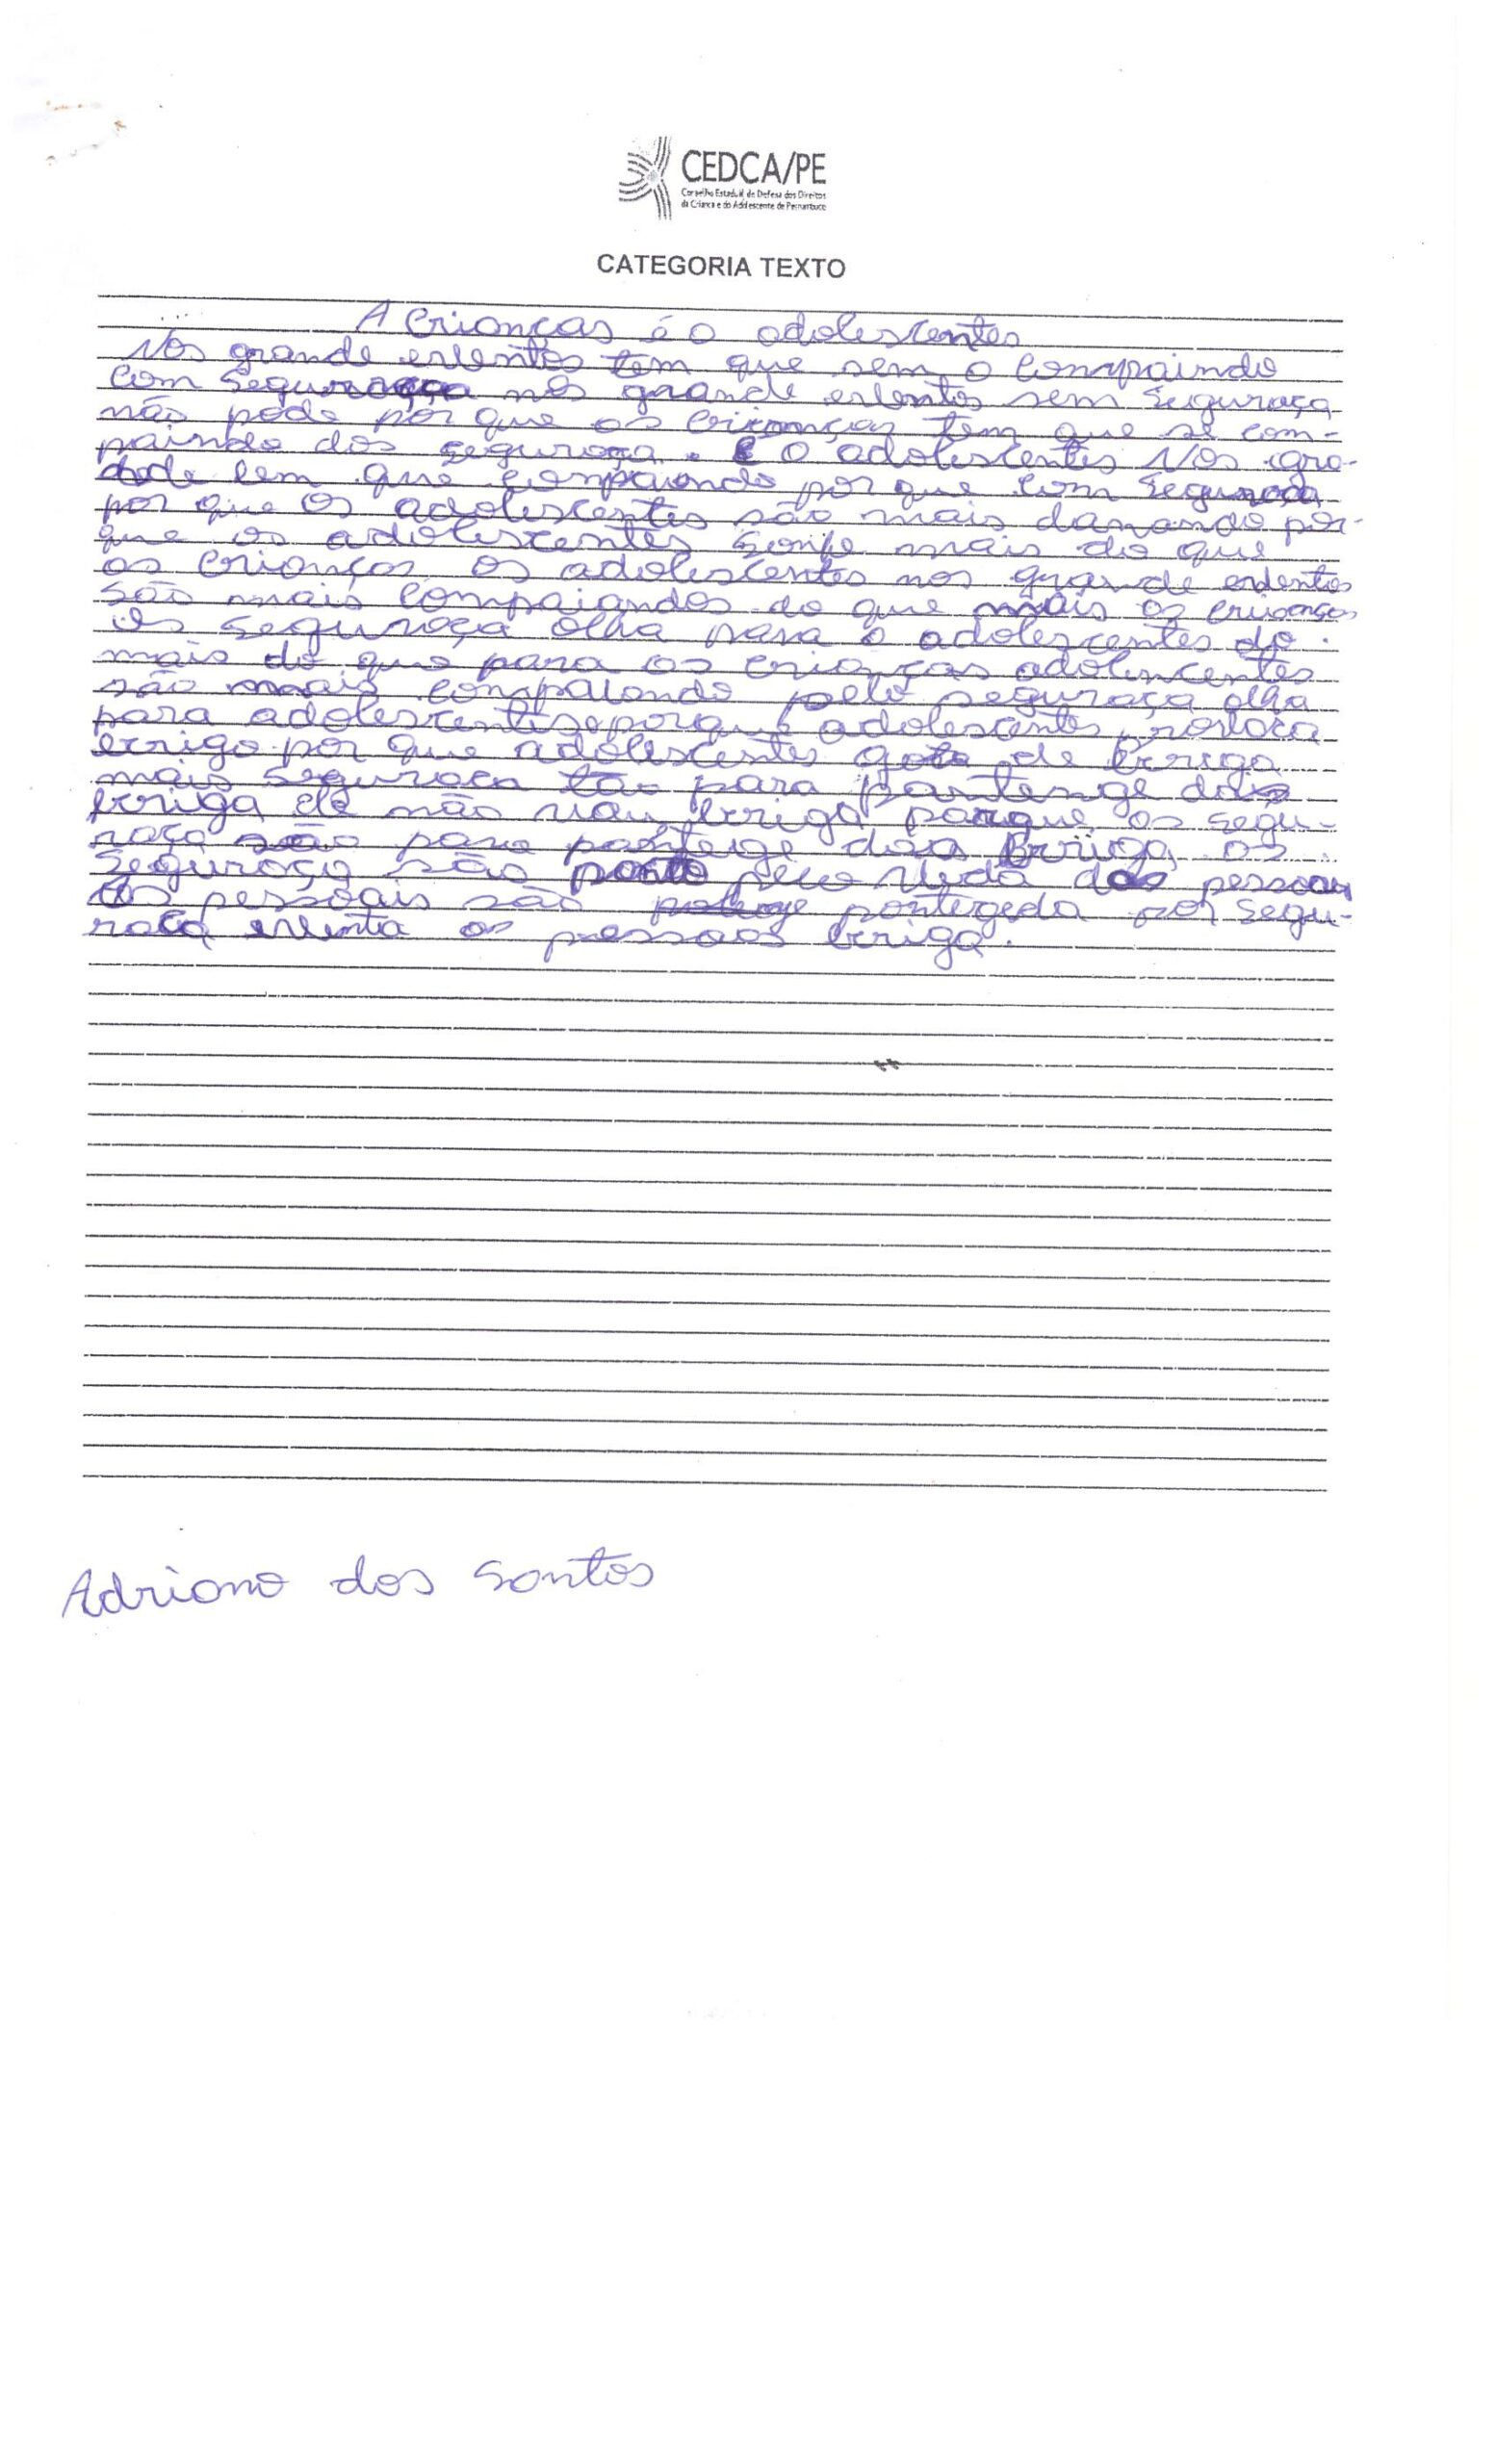 CEDCA/PE
Conselho Estadual de Defesa dos Direitos
da Criança e do Adolescente de Pernambuco
CATEGORIA TEXTO
A Crianças é o adolescentes
Nos grande eventos tem que sem o Compaindo
Com Seguraça nos grande eventos sem Seguraça
não pode por que as Crianças tem que se com-
paindo dos seguraça. E o adolescentes Nos gra-
tem que por que com Seguraça
por que Os adolescentes são mais danando por-
que os adolescentes mais do que
as Crianças os adolescentes nos grande eventos
São mais Compaiandos do que mais as crianças
Os Seguraça olha para o adolescentes do
mais do que para as crianças adolencentes
são mais pelo seguraça olha
para adolescentes porque adolescentes provoca
briga por que adolescentes gota de briga
mais Seguraça tão para pantenge das
briga ele não vau briga parque os segu-
raça são para das Briga os
Seguraça são pelo vida das pessoas
As pessoais são pontegeda por segu-
raça eventa as pessoas briga.
Adriano dos Santos